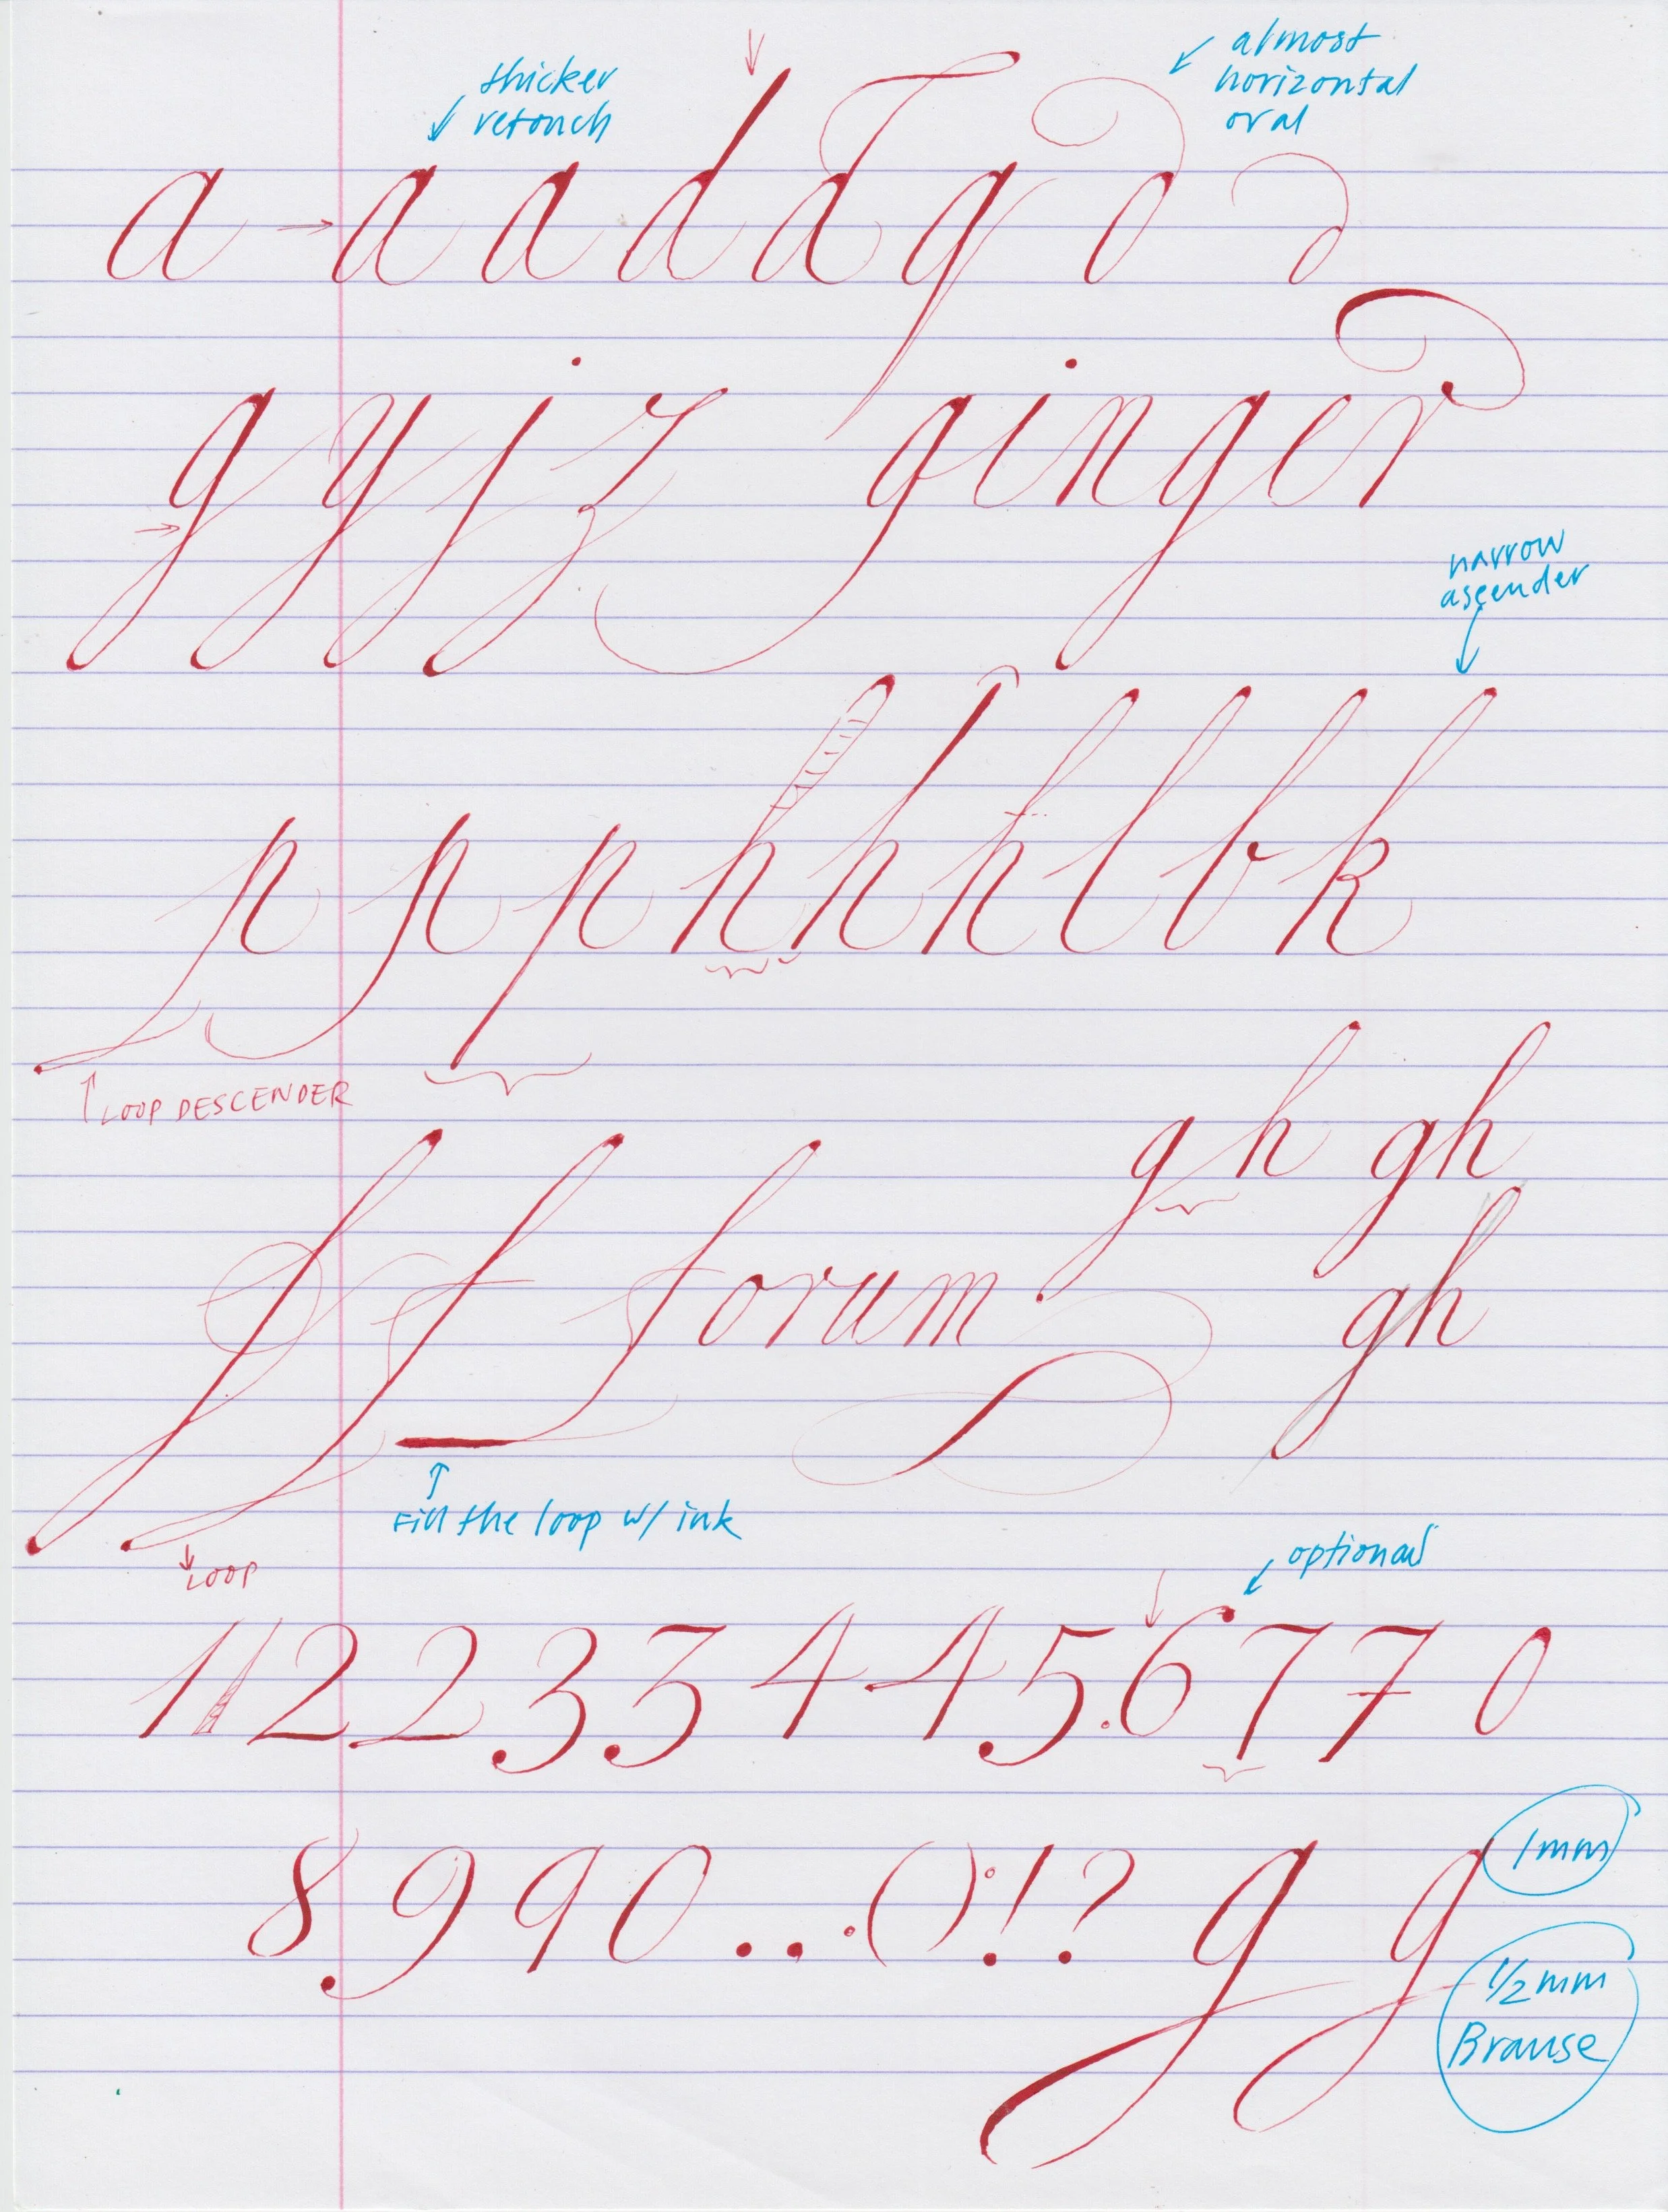 thicker
retouch
almost
horizontal
oval
a a a d d g d d
g y j z ginger
narrow
ascender
p p p h h h l b k
LOOP DESCENDER
gh gh
f f forum
gh
Fill the loop w/ ink
LOOP
optional
1 1 2 2 3 3 4 4 5 . 6 7 7 0
8 9 9 0 . . : ( ) : ! ? g g
1mm
1/2 mm
Brause